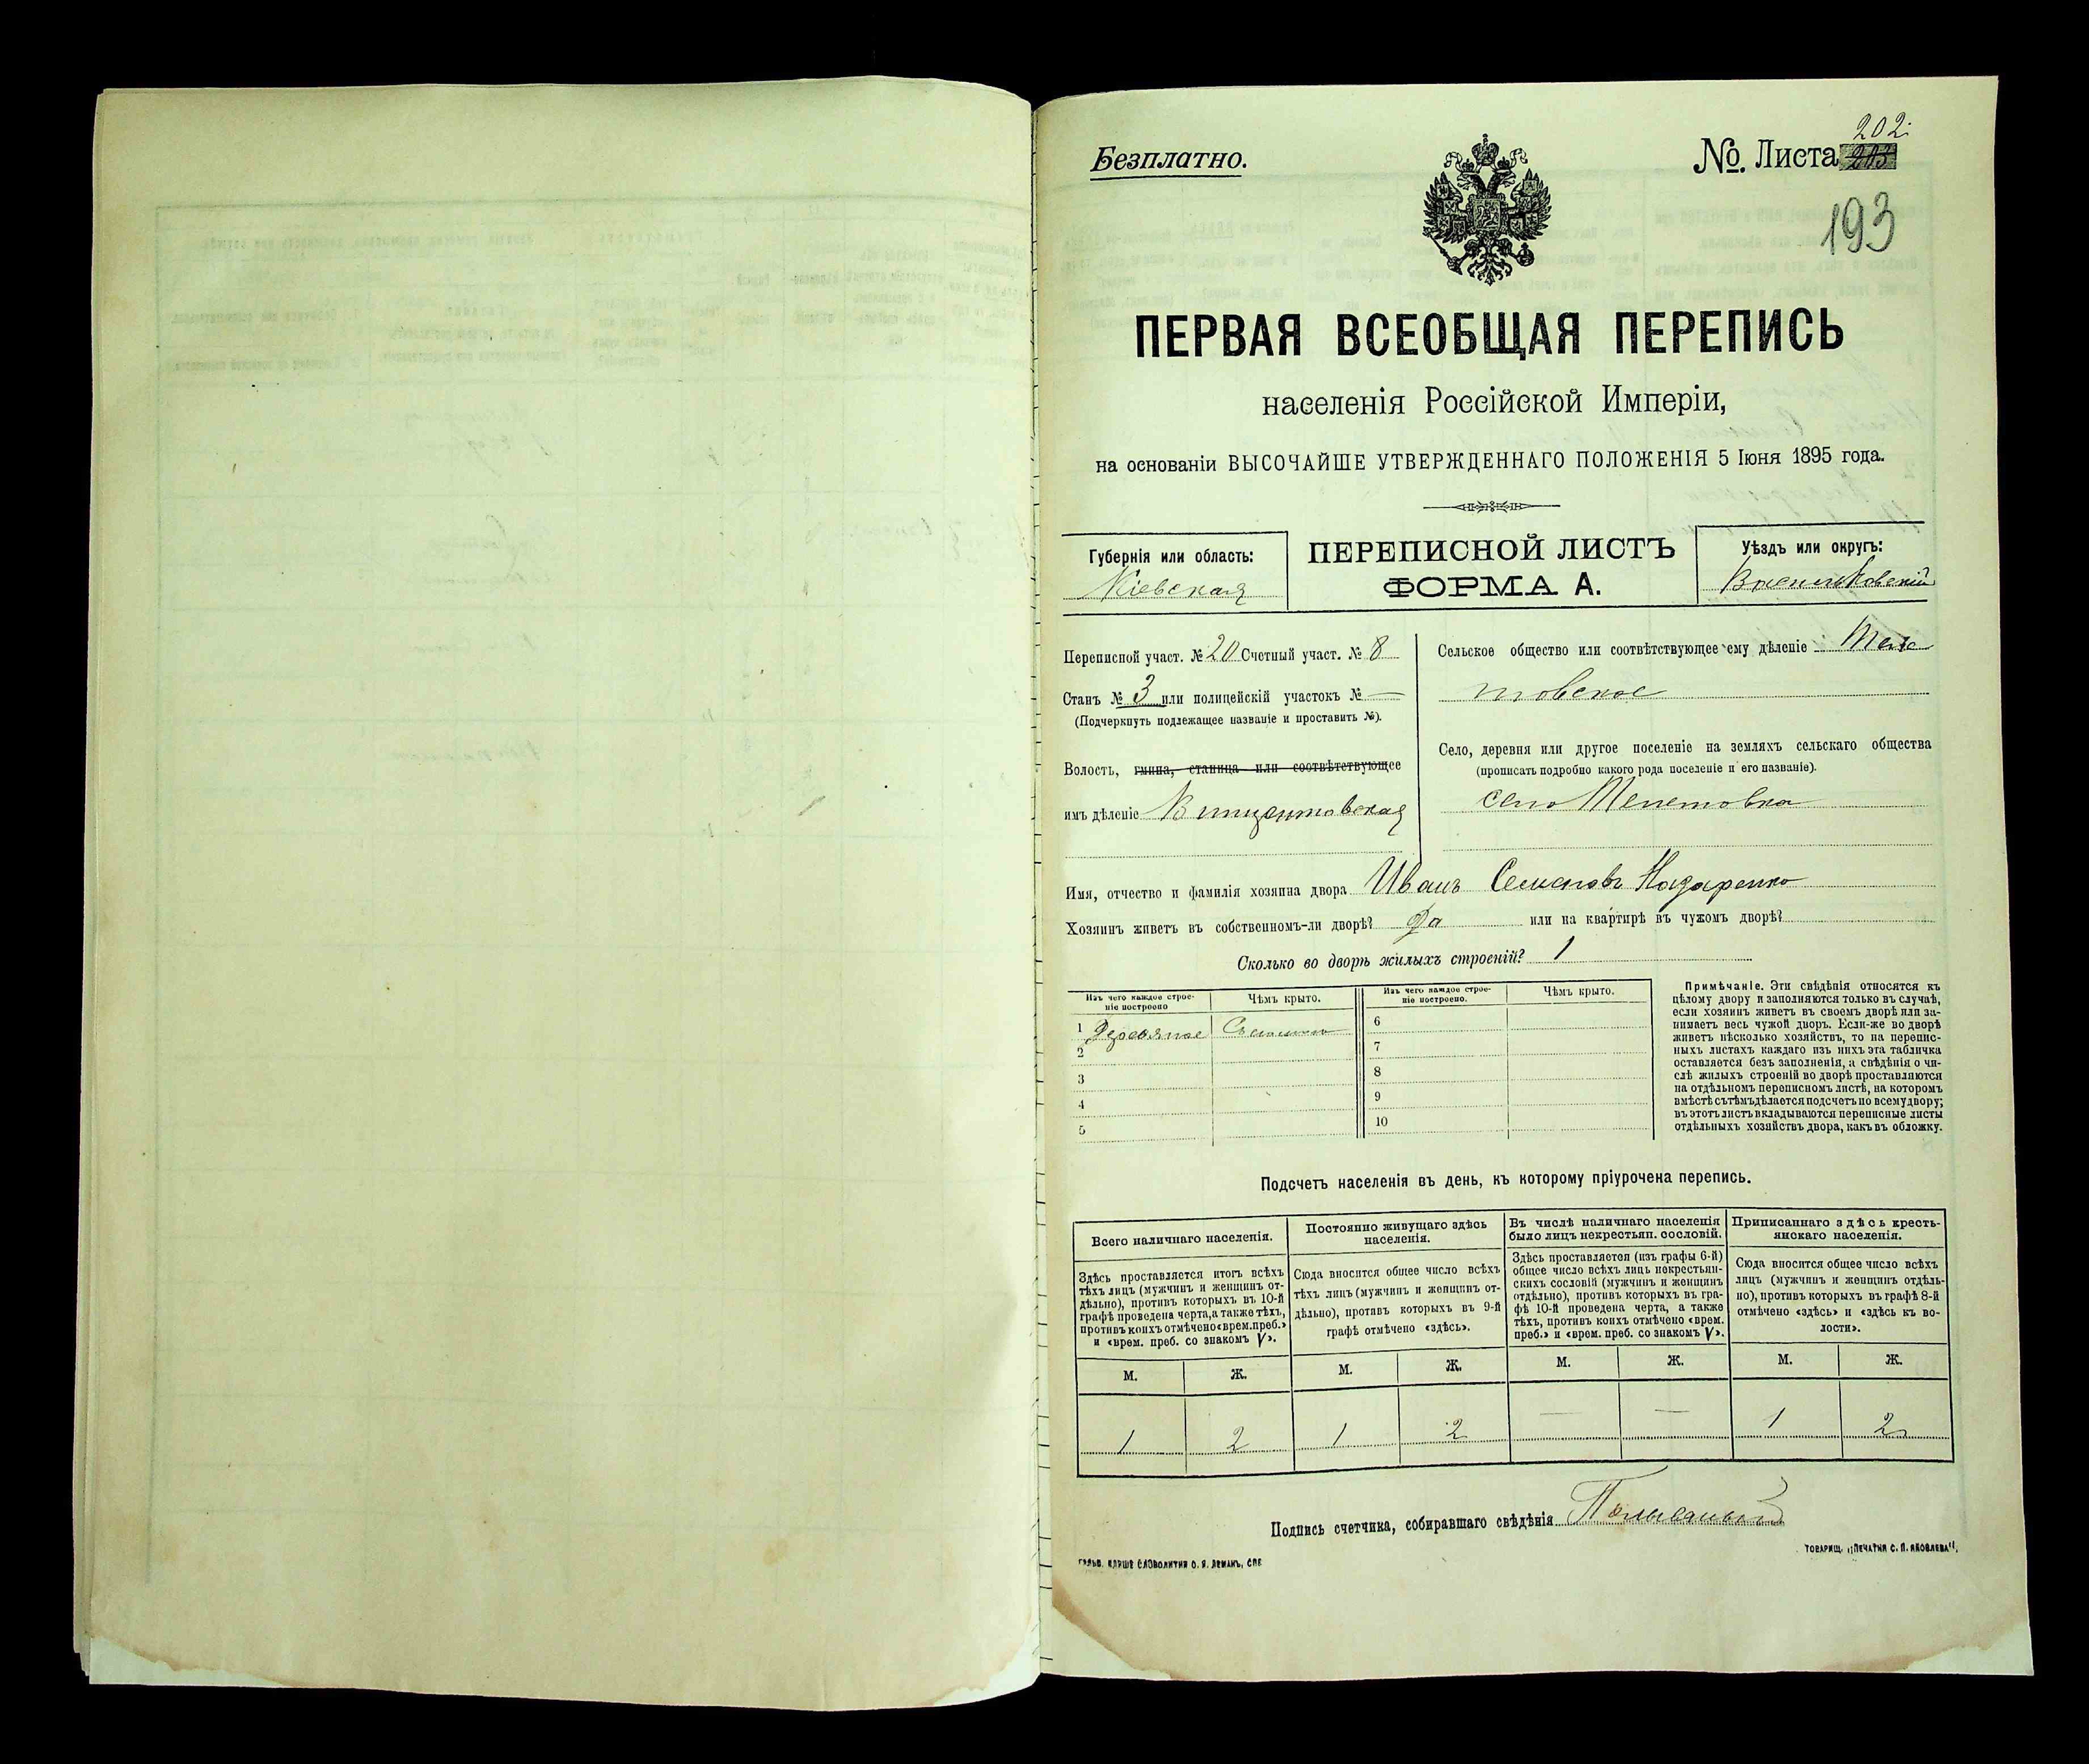 Безплатно.
№. Листа 202.
193
ПЕРВАЯ ВСЕОБЩАЯ ПЕРЕПИСЬ
населенія Россійской Имперіи,
на основаніи ВЫСОЧАЙШЕ УТВЕРЖДЕННАГО ПОЛОЖЕНІЯ 5 Іюня 1895 года.
Губернія или область:
Кіевская
ПЕРЕПИСНОЙ ЛИСТЪ
ФОРМА А.
Уѣздъ или округъ:
Васильковскій
Переписной участ. № 20 Счетный участ. № 8
Станъ № 3 или полицейскій участокъ № —
(Подчеркнуть подлежащее названіе и проставить №).
Волость, гмина, станица или соотвѣтствующее
имъ дѣленіе Винцентовская
Сельское общество или соотвѣтствующее ему дѣленіе
товское
Село, деревня или другое поселеніе на земляхъ сельскаго общества
(прописать подробно какого рода поселеніе и его названіе).
село
Имя, отчество и фамилія хозяина двора Иванъ Семеновъ Назаренко
Хозяинъ живетъ въ собственномъ-ли дворѣ? Да или на квартирѣ въ чужомъ дворѣ?
Сколько во дворѣ жилыхъ строеній? 1
Изъ чего каждое строе-
ніе построено
Чѣмъ крыто.
Изъ чего каждое строе-
ніе построено.
Чѣмъ крыто.
1 Деревяное Соломою
2
3
4
5
6
7
8
9
10
Примѣчаніе. Эти свѣдѣнія относятся къ
цѣлому двору и заполняются только въ случаѣ,
если хозяинъ живетъ въ своемъ дворѣ или за-
нимаетъ весь чужой дворъ. Если-же во дворѣ
живетъ нѣсколько хозяйствъ, то на перепис-
ныхъ листахъ каждаго изъ нихъ эта табличка
оставляется безъ заполненія, а свѣдѣнія о чи-
слѣ жилыхъ строеній во дворѣ проставляются
на отдѣльномъ переписномъ листѣ, на которомъ
вмѣстѣ съ тѣмъ дѣлается подсчетъ по всему двору;
въ этотъ листъ вкладываются переписные листы
отдѣльныхъ хозяйствъ двора, какъ въ обложку.
Подсчетъ населенія въ день, къ которому пріурочена перепись.
Всего наличнаго населенія.
Здѣсь проставляется итогъ всѣхъ
тѣхъ лицъ (мужчинъ и женщинъ от-
дѣльно), противъ которыхъ въ 10-й
графѣ проведена черта, а также тѣхъ,
противъ коихъ отмѣчено «врем. преб.»
и «врем. преб. со знакомъ V».
Постоянно живущаго здѣсь
населенія.
Сюда вносится общее число всѣхъ
тѣхъ лицъ (мужчинъ и женщинъ от-
дѣльно), противъ которыхъ въ 9-й
графѣ отмѣчено «здѣсь».
Въ числѣ наличнаго населенія
было лицъ некрестьян. сословій.
Здѣсь проставляется (изъ графы 6-й)
общее число всѣхъ лицъ некрестьян-
скихъ сословій (мужчинъ и женщинъ
отдѣльно), противъ которыхъ въ гра-
фѣ 10-й проведена черта, а также
тѣхъ, противъ коихъ отмѣчено «врем.
преб.» и «врем. преб. со знакомъ V».
Приписаннаго здѣсь кресть-
янскаго населенія.
Сюда вносится общее число всѣхъ
лицъ (мужчинъ и женщинъ отдѣль-
но), противъ которыхъ въ графѣ 8-й
отмѣчено «здѣсь» и «здѣсь къ во-
лости».
М. Ж. М. Ж. М. Ж. М. Ж.
1 2 1 2 — — 1 2
Подпись счетчика, собиравшаго свѣдѣнія
ГАЛЬВ. КЛИШЕ СЛОВОЛИТНИ О. И. ЛЕМАНЪ, СПБ
ТОВАРИЩ. „ПЕЧАТНЯ С. П. ЯКОВЛЕВА“.